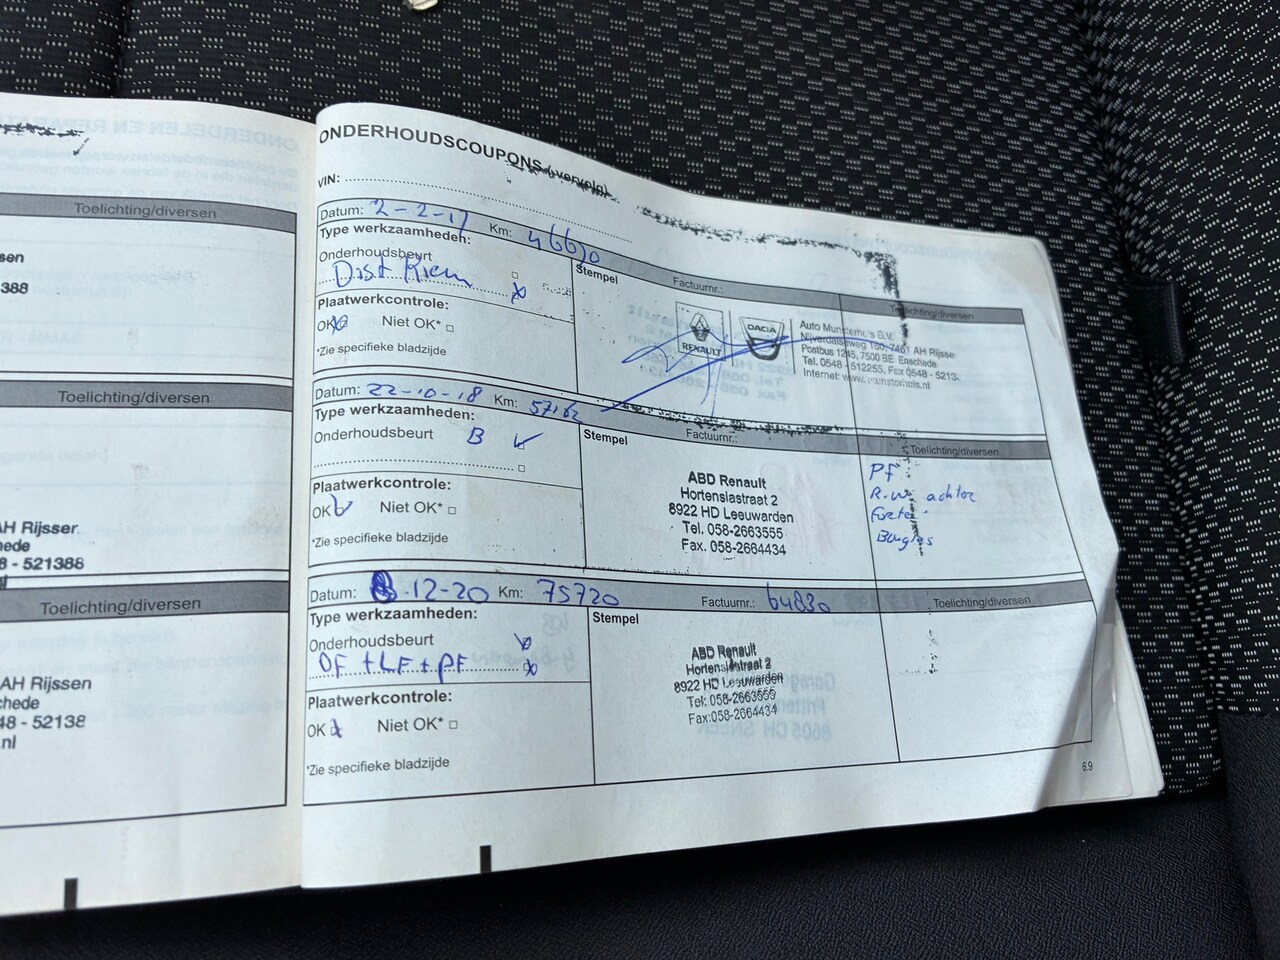 Toelichting/diversen
sen
388
Toelichting/diversen
AH Rijssen
hede
8 - 521388
Toelichting/diversen
AH Rijssen
chede
48 - 52138
.nl
ONDERHOUDSCOUPONS (vervolg)
VIN:
Datum: 2-2-17 Km: 46630
Type werkzaamheden:
Onderhoudsbeurt
Dist Riem
Plaatwerkcontrole:
OK Niet OK*
*Zie specifieke bladzijde
Stempel Factuurnr.: Toelichting/diversen
RENAULT
DACIA
Auto Munsterhuis B.V.
Nijverdalseweg 150, 7461 AH Rijssen
Postbus 1245, 7500 BE Enschede
Tel. 0548 - 512255, Fax 0548 - 5213
Internet: www.munsterhuis.nl
Datum: 22-10-18 Km: 57162
Type werkzaamheden:
Onderhoudsbeurt B
Plaatwerkcontrole:
OK Niet OK*
*Zie specifieke bladzijde
Stempel Factuurnr.: Toelichting/diversen
ABD Renault
Hortensiastraat 2
8922 HD Leeuwarden
Tel. 058-2663555
Fax. 058-2664434
PF
R.W. achter
Bougies
Datum: 8-12-20 Km: 75720 Factuurnr.: 64830 Toelichting/diversen
Type werkzaamheden:
Onderhoudsbeurt
OF + LF + PF
Plaatwerkcontrole:
OK Niet OK*
*Zie specifieke bladzijde
Stempel
ABD Renault
Hortensiastraat 2
8922 HD Leeuwarden
Tel: 058-2663555
Fax:058-2664434
6.9